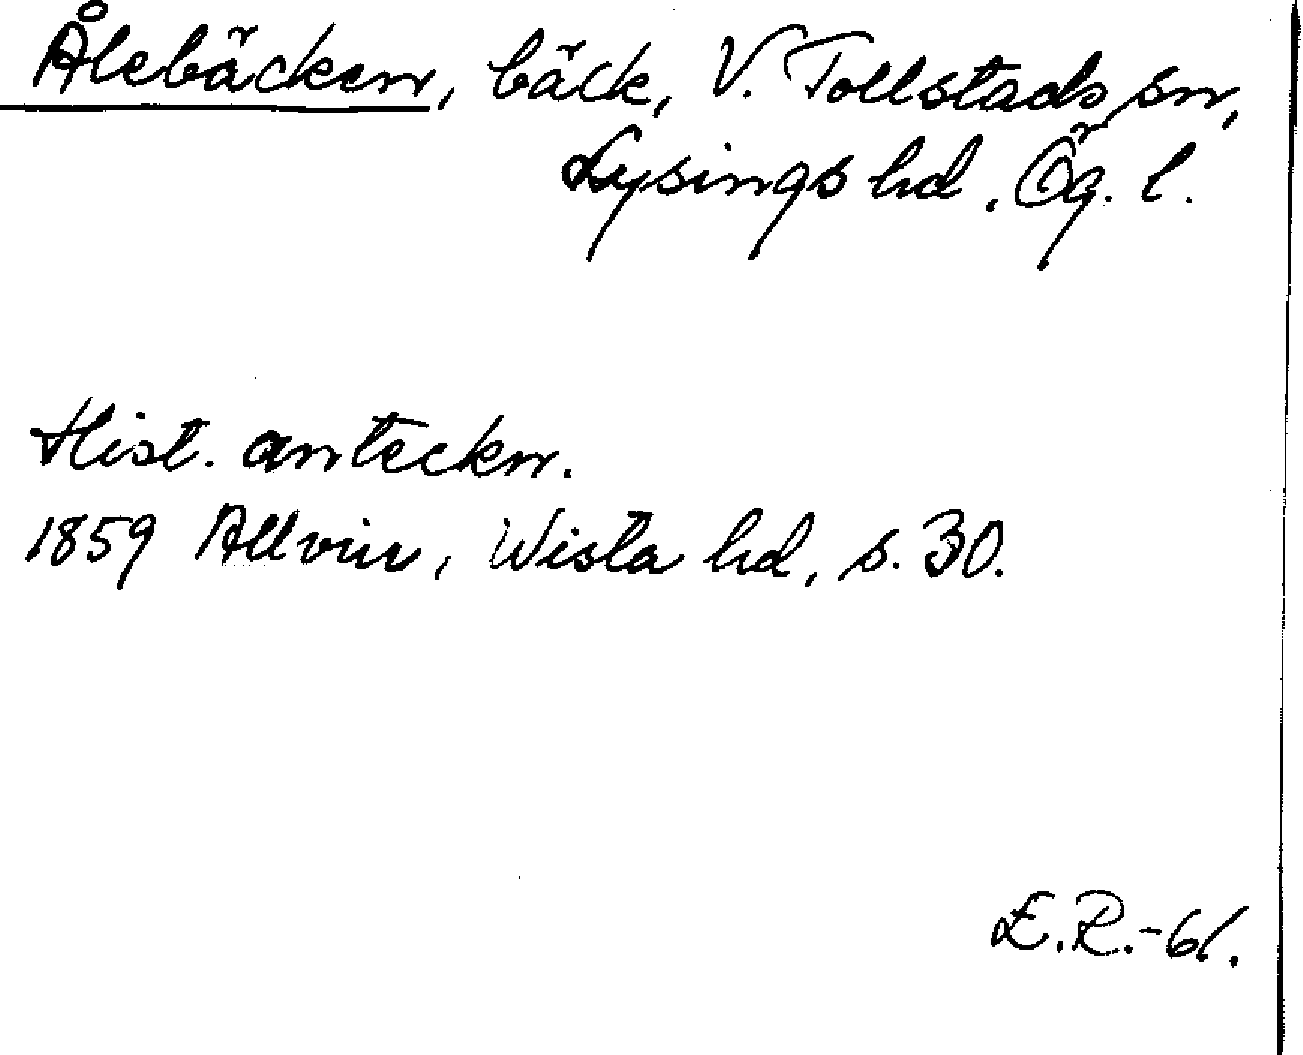 Ålebäcken, bäck, V. Tollstads sn,
Lysings hd. Ög. l.
Hist. anteckn.
1859 Allvin, Wista hd, s. 30.
E.R.-61.